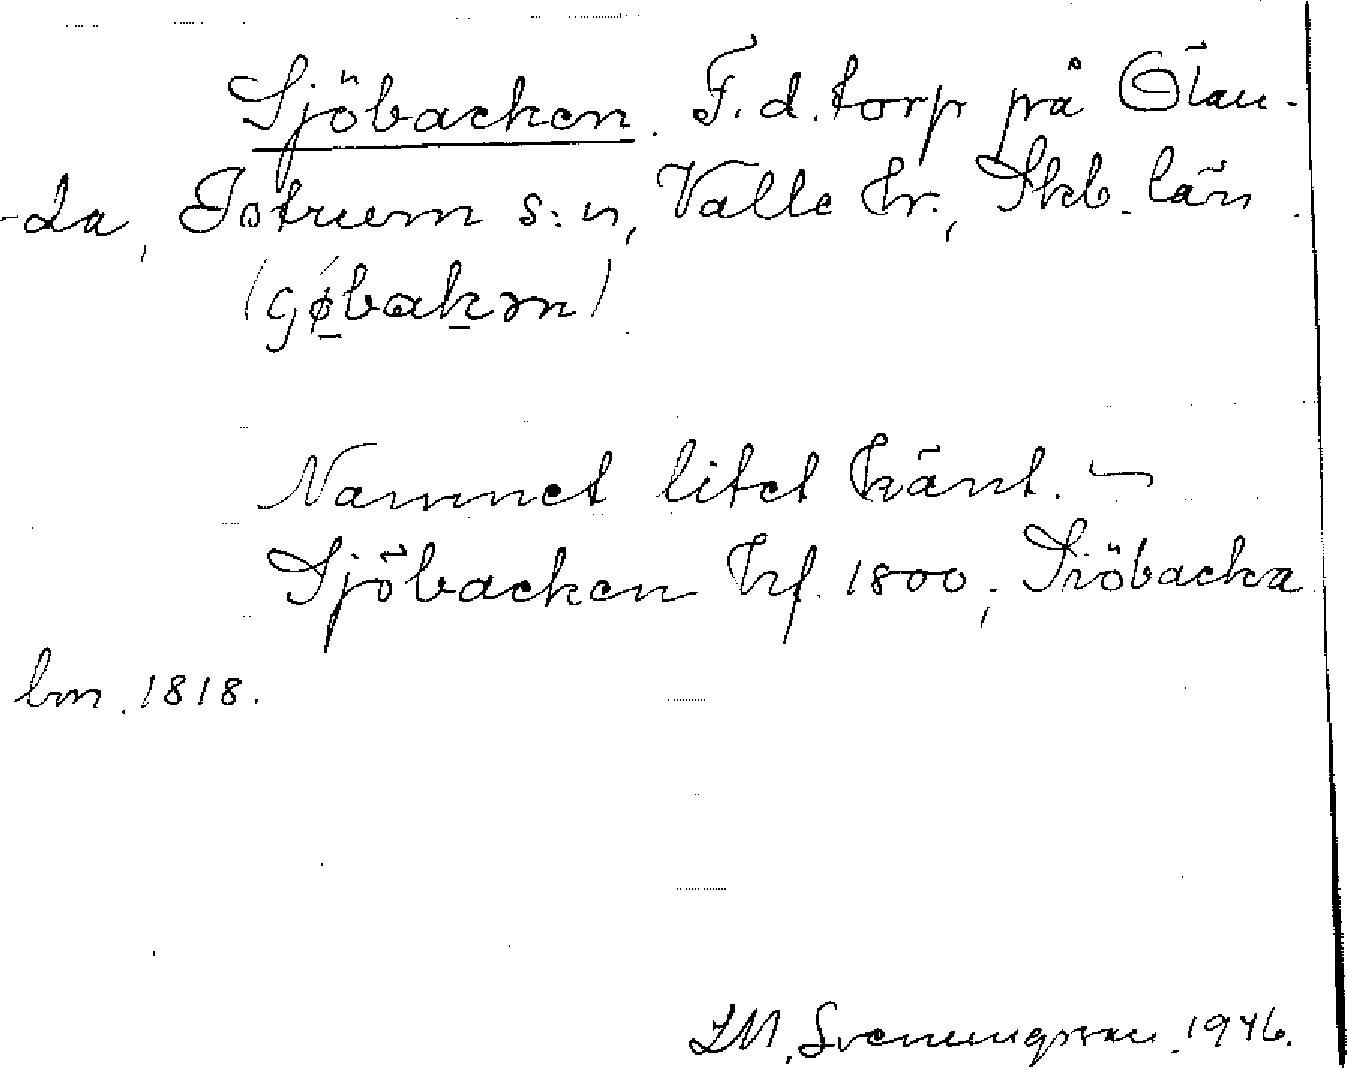 Sjöbacken. F.d. torp på Ölan-
-da, Istrum s:n, Valle hr., Skb. län.
(Gǿbakən)
Namnet litet känt. –
Sjöbacken hf. 1800; Siöbacka
bm. 1818.
LM. Svenungsson 1946.